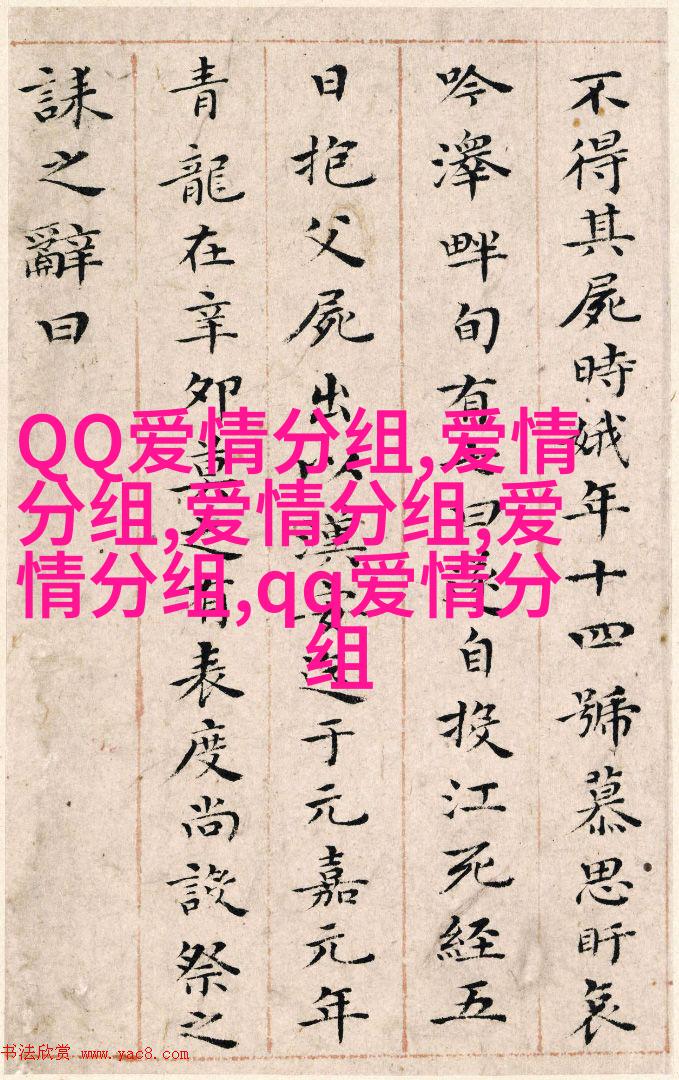 不得其屍時娥年十四號慕思盱哀
吟澤畔旬有七日遂自投江死經五
日抱父屍出以漢安迄于元嘉元年
青龍在辛卯莫之有表度尚設祭之
誄之辭曰
QQ爱情分组,爱情
分组,爱情分组,爱
情分组,qq爱情分
组
书法欣赏 www.yac8.com